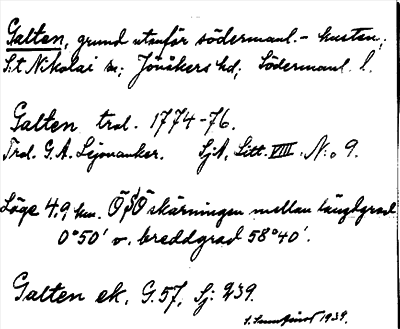 Galten, grund utanför södermanl.-kusten,
S:t Nikolai sn; Jönåkers hd; Södermanl. l.
Galten trol. 1774-76.
Trol. G.A. Lejonanker. SjA, Litt. VIII, N:o 9.
Läge 4,9 km. ÖSÖ skärningen mellan längdgrad
0°50' o. breddgrad 58°40'.
Galten ek. G.57, Sj: 239.
1939.